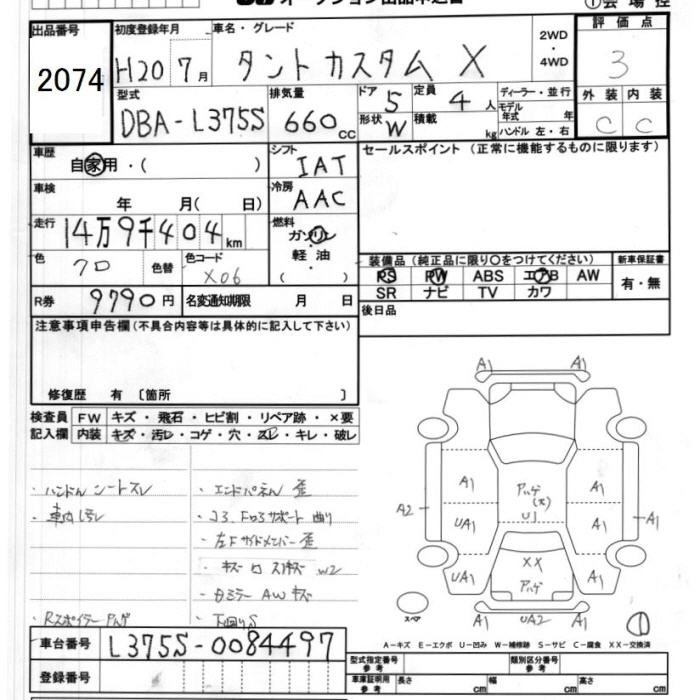 出品番号 初度登録年月 車名・グレード 評価点
2074 H20 7月 タントカスタム X 2WD・4WD 3
型式 DBA-L375S 排気量 660cc
ドア 5 定員 4人 ディーラー・並行
形状 W 積載 kg モデル年式 年 ハンドル 左・右
外装 内装
C C
車歴 自家用・( )
シフト IAT
セールスポイント (正常に機能するものに限ります)
車検 年 月( 日)
冷房 AAC
走行 14万9千404km
燃料 ガソリン・軽油・( )
色 クロ 色替 色コード X06
装備品(純正品に限り○をつけてください) 新車保証書
PS PW ABS エアB AW 有・無
SR ナビ TV カワ
R券 9790円 名変通知期限 月 日
後日品
注意事項申告欄(不具合内容等は具体的に記入して下さい)
修復歴 有 〔箇所 〕
検査員 FW キズ・飛石・ヒビ割・リペア跡・×要
記入欄 内装 キズ・汚レ・コゲ・穴・スレ・キレ・破レ
・ハンドル シートスレ
・車内汚レ
・Rスポイラー ハゲ
・エンドパネル 歪
・左Fサイドメンバー 歪
・ミラー AWキズ
・下回りS
A1 A1
A1 アハゲ(大) A1
A2 UA1 U1 A1 A1
XX
UA1 アハゲ A1
A1 UA2 A1
スペア
A-キズ E-エクボ U-凹み W-補修跡 S-サビ C-腐食 XX-交換済
車台番号 L375S-0084497
登録番号
型式指定番号 参考 類別区分番号 参考
車庫証明用 参考 長さ cm 幅 cm 高さ cm